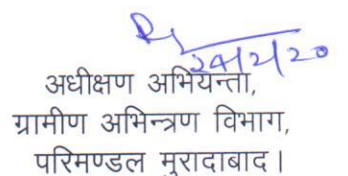 24/2/20
अधीक्षण अभियन्ता,
ग्रामीण अभिन्त्रण विभाग,
परिमण्डल मुरादाबाद।